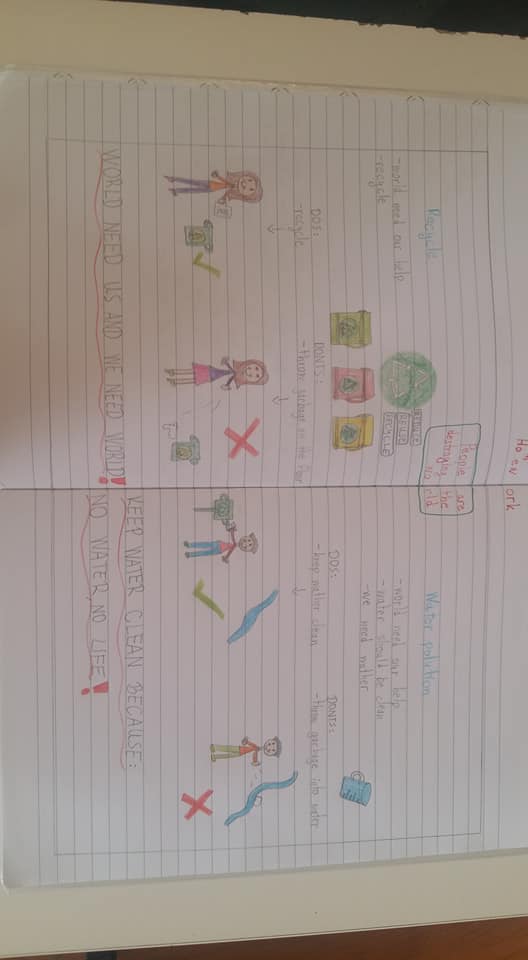 People are
destroying the
world
Recycle
-world need our help
-recycle
REDUCE
REUSE
RECYCLE
DOS:
-recycle
DONTS:
-throw garbage on the floor
WORLD NEED US AND WE NEED WORLD!
Water polution
-world need our help
-water should be clean
-we need wather
DOS:
-keep wather clean
DONTS:
-throw garbage into water
KEEP WATER CLEAN BECAUSE:
NO WATER, NO LIFE!